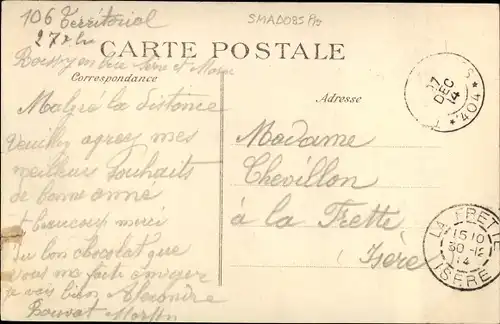 106 Territorial
SMAD085
27
CARTE POSTALE
Roissy en Brie Seine et Marne
Correspondance
Adresse
27
DEC
14
*404*
Malgré la distance
Veuillez agreez mes
meilleurs souhaits
de bonne anné
et beaucoup merci
du bon chocolat que
vous ma faite envoyer
je vais bien Alexandre
Madame
Chevillon
à la Frette
Isère
LA FRETTE
15 10
30 -12
14
ISERE